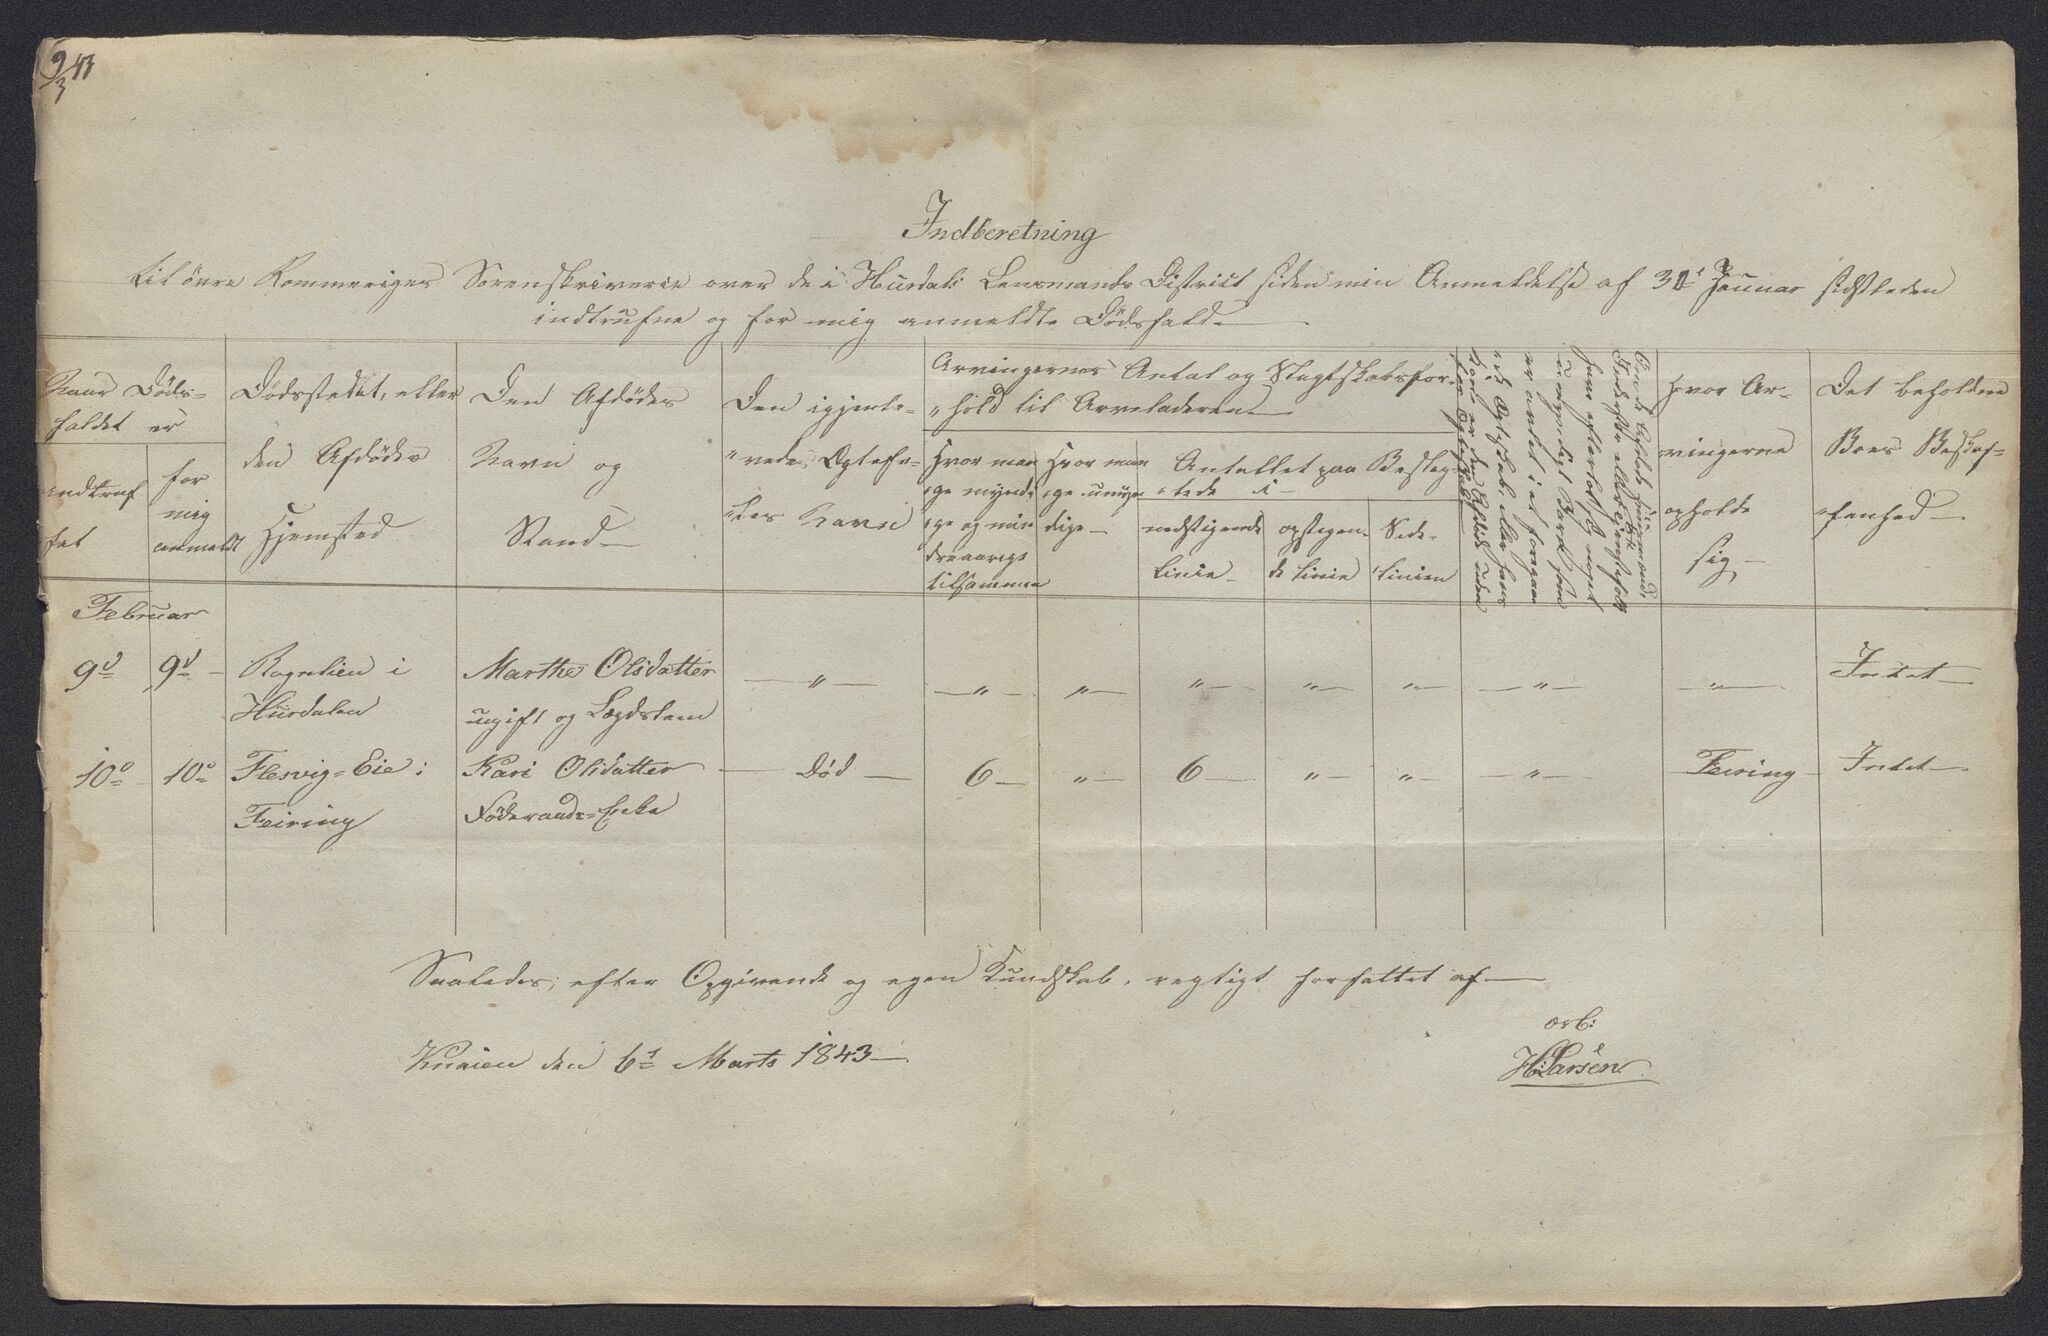 9/3 43
Indberetning
til övre Rommeriges Sorenskriverie over de i Hurdals Lensmands District siden min Anmeldelse af 31t Januar sidstleden
indtrufne og for mig anmeldte Dödsfald
Naar Döds-
faldet er
indtruf
fet
for
mig
anmeldt
Dödsstedet, eller
den Afdödes
Hjemsted
Den Afdödes
Navn og
Stand
Den igjenle-
"vende Ægtefæ-
"les Navn
Arvingernes Antal og Slægtskabsfor-
"hold til Arveladeren
Hvor man
"ge myndi
"ge og min
dreaarige
tilsammen
Hvor man
"ge umyn
dige
Antallet paa Beslæg-
"tede i
nedstigende
Linie
opstigen-
de Linie
Side-
Linien
Hvor Ar-
vingerne
opholde
sig
Det beholdne
Boes Beskaf-
"fenhed
Februar
9d 9d Rognlien i Marthe Olsdatter " " " " " " " " Intet
Hurdalen ugift og Lægdslem
10de 10de Flesvig-Eie i Kari Olsdatter Död 6 " 6 " " " Feiring Intet
Feiring Föderaads-Enke
Saaledes, efter Opgivende og egen Kundskab, rigtigt forfattet af
den 6t Marts 1843
H. Larsen